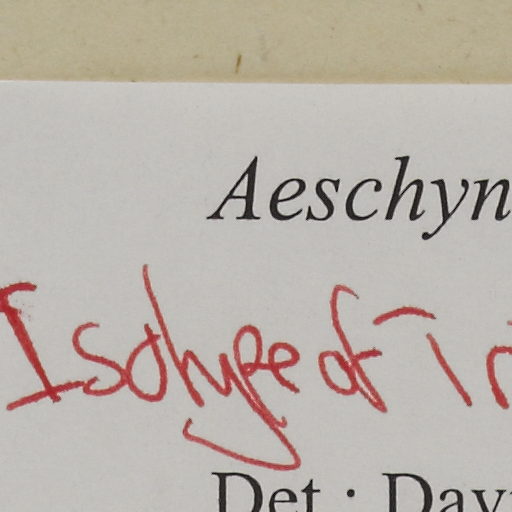 Aeschyn
Isotype of Tri
Det : Dav